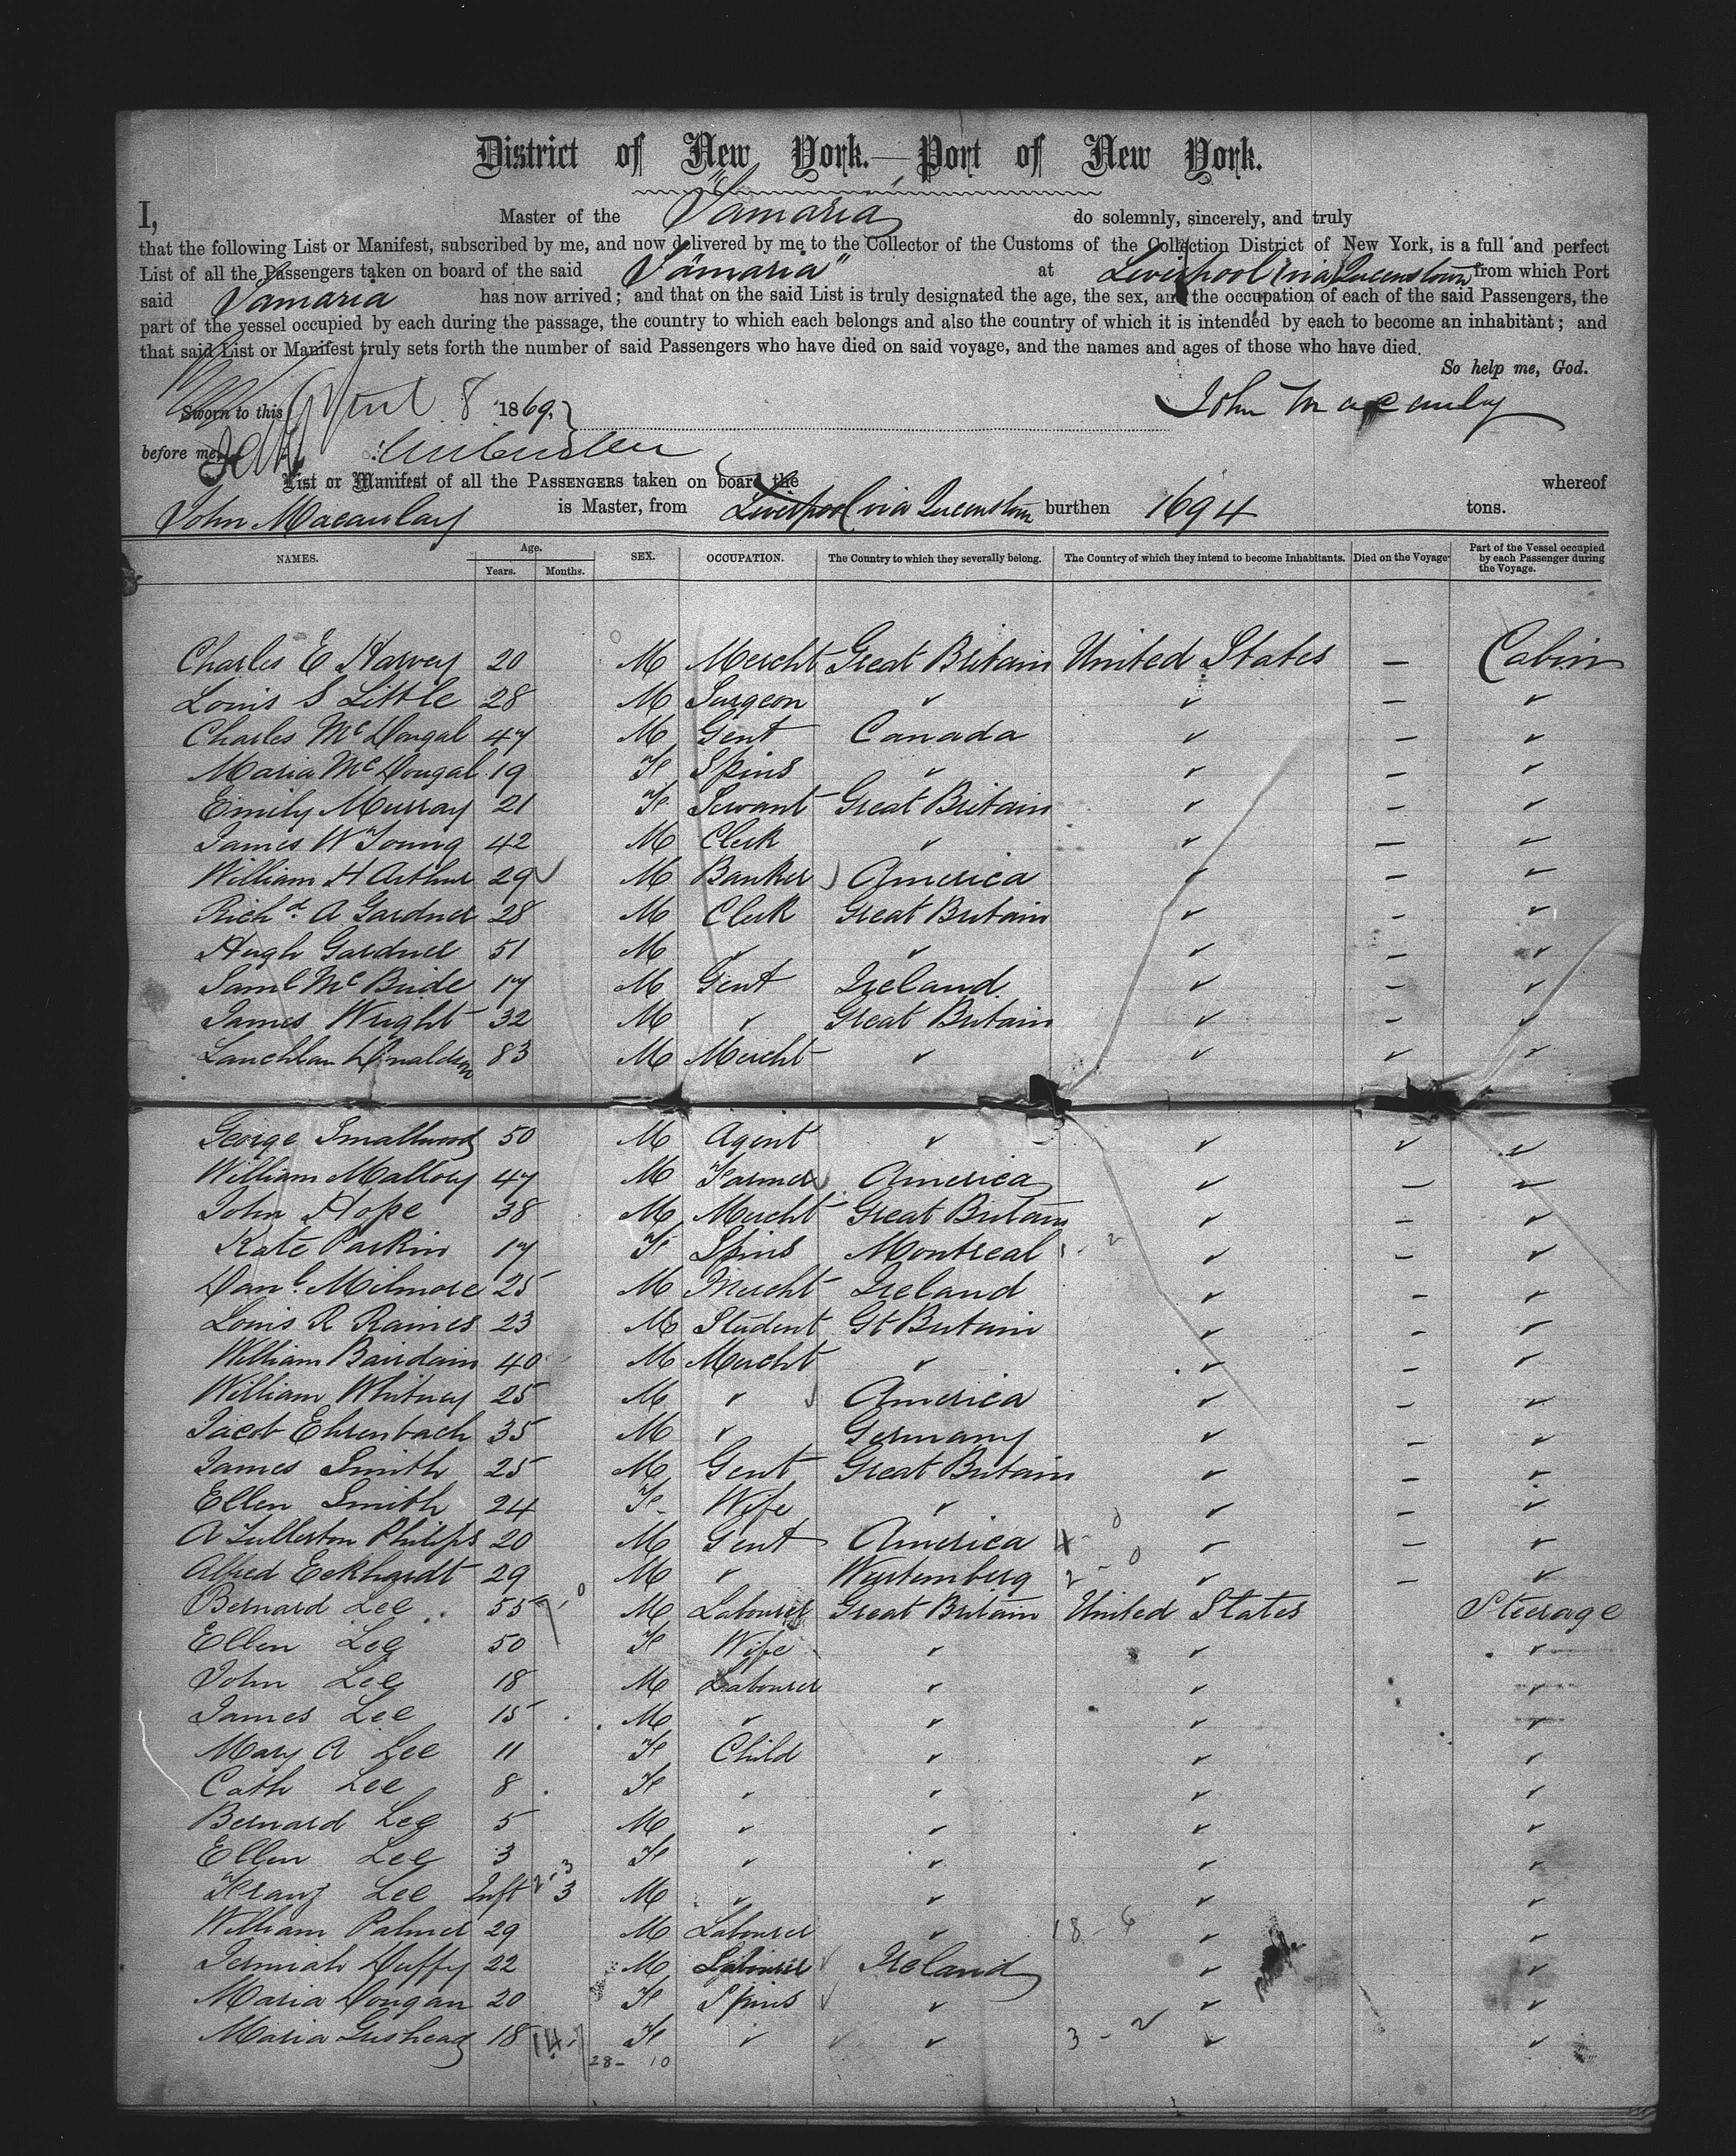 District of New York.—Port of New York.
I, Master of the "Samaria" do solemnly, sincerely, and truly
that the following List or Manifest, subscribed by me, and now delivered by me to the Collector of the Customs of the Collection District of New York, is a full and perfect
List of all the Passengers taken on board of the said "Samaria" at Liverpool via Queenstown from which Port
said Samaria has now arrived; and that on the said List is truly designated the age, the sex, and the occupation of each of the said Passengers, the
part of the vessel occupied by each during the passage, the country to which each belongs and also the country of which it is intended by each to become an inhabitant; and
that said List or Manifest truly sets forth the number of said Passengers who have died on said voyage, and the names and ages of those who have died.
So help me, God.
Sworn to this April 8 1869, John Macaulay
before me
List or Manifest of all the PASSENGERS taken on board the whereof
John Macaulay is Master, from Liverpool via Queenstown burthen 1694 tons.
NAMES. Age. Years. Months. SEX. OCCUPATION. The Country to which they severally belong. The Country of which they intend to become Inhabitants. Died on the Voyage Part of the Vessel occupied by each Passenger during the Voyage.
Charles E Harvey 20 M Mercht Great Britain United States — Cabin
Louis S Little 28 M Surgeon ✓ ✓ — ✓
Charles McDougal 47 M Gent Canada ✓ — ✓
Maria McDougal 19 F Spins ✓ ✓ — ✓
Emily Murray 21 F Servant Great Britain ✓ — ✓
James W Young 42 M Clerk ✓ ✓ — ✓
William H Arthur 29 M Banker America ✓ — ✓
Richd. A Gardner 28 M Clerk Great Britain ✓ — ✓
Hugh Gardner 51 M ✓ ✓ ✓ — ✓
Saml McBride 17 M Gent Ireland ✓ — ✓
James Wright 32 M ✓ Great Britain ✓ — ✓
Lauchlan Donaldson 83 M Mercht ✓ ✓ ✓ ✓
George Smallwood 50 M Agent ✓ ✓ ✓ ✓
William Mallory 47 M Farmer America ✓ — ✓
John Hope 38 M Mercht Great Britain ✓ — ✓
Kate Parkin 17 F Spins Montreal ✓ — ✓
Danl. Milmore 25 M Mercht Ireland ✓ — ✓
Louis R Raines 23 M Student Gt Britain ✓ — ✓
William Bairdain 40 M Mercht ✓ ✓ — ✓
William Whitney 25 M ✓ America ✓ — ✓
Jacob Ehrenbach 35 M ✓ Germany ✓ — ✓
James Smith 25 M Gent Great Britain ✓ — ✓
Ellen Smith 24 F Wife ✓ ✓ — ✓
A Fullerton Philips 20 M Gent America 4 - 0 ✓ — ✓
Alfred Eckhardt 29 M ✓ Wurtemberg 2 - 0 ✓ — ✓
Bernard Lee 55 M Labourer Great Britain United States Steerage
Ellen Lee 50 F Wife ✓ ✓ ✓
John Lee 18 M Labourer ✓ ✓ ✓
James Lee 15 M ✓ ✓ ✓ ✓
Mary A Lee 11 F Child ✓ ✓ ✓
Cath Lee 8 F ✓ ✓ ✓ ✓
Bernard Lee 5 M ✓ ✓ ✓ ✓
Ellen Lee 3 F ✓ ✓ ✓ ✓
Franz Lee Inft 3 M ✓ ✓ ✓ ✓
William Palmer 29 M Labourer ✓ 18 - 6 ✓ ✓
Jermiah Duffy 22 M Labourer Ireland ✓ ✓
Maria Dougan 20 F Spins ✓ ✓ ✓
Maria Gushead 18 F ✓ ✓ 3 - 2 ✓ ✓
28 - 10